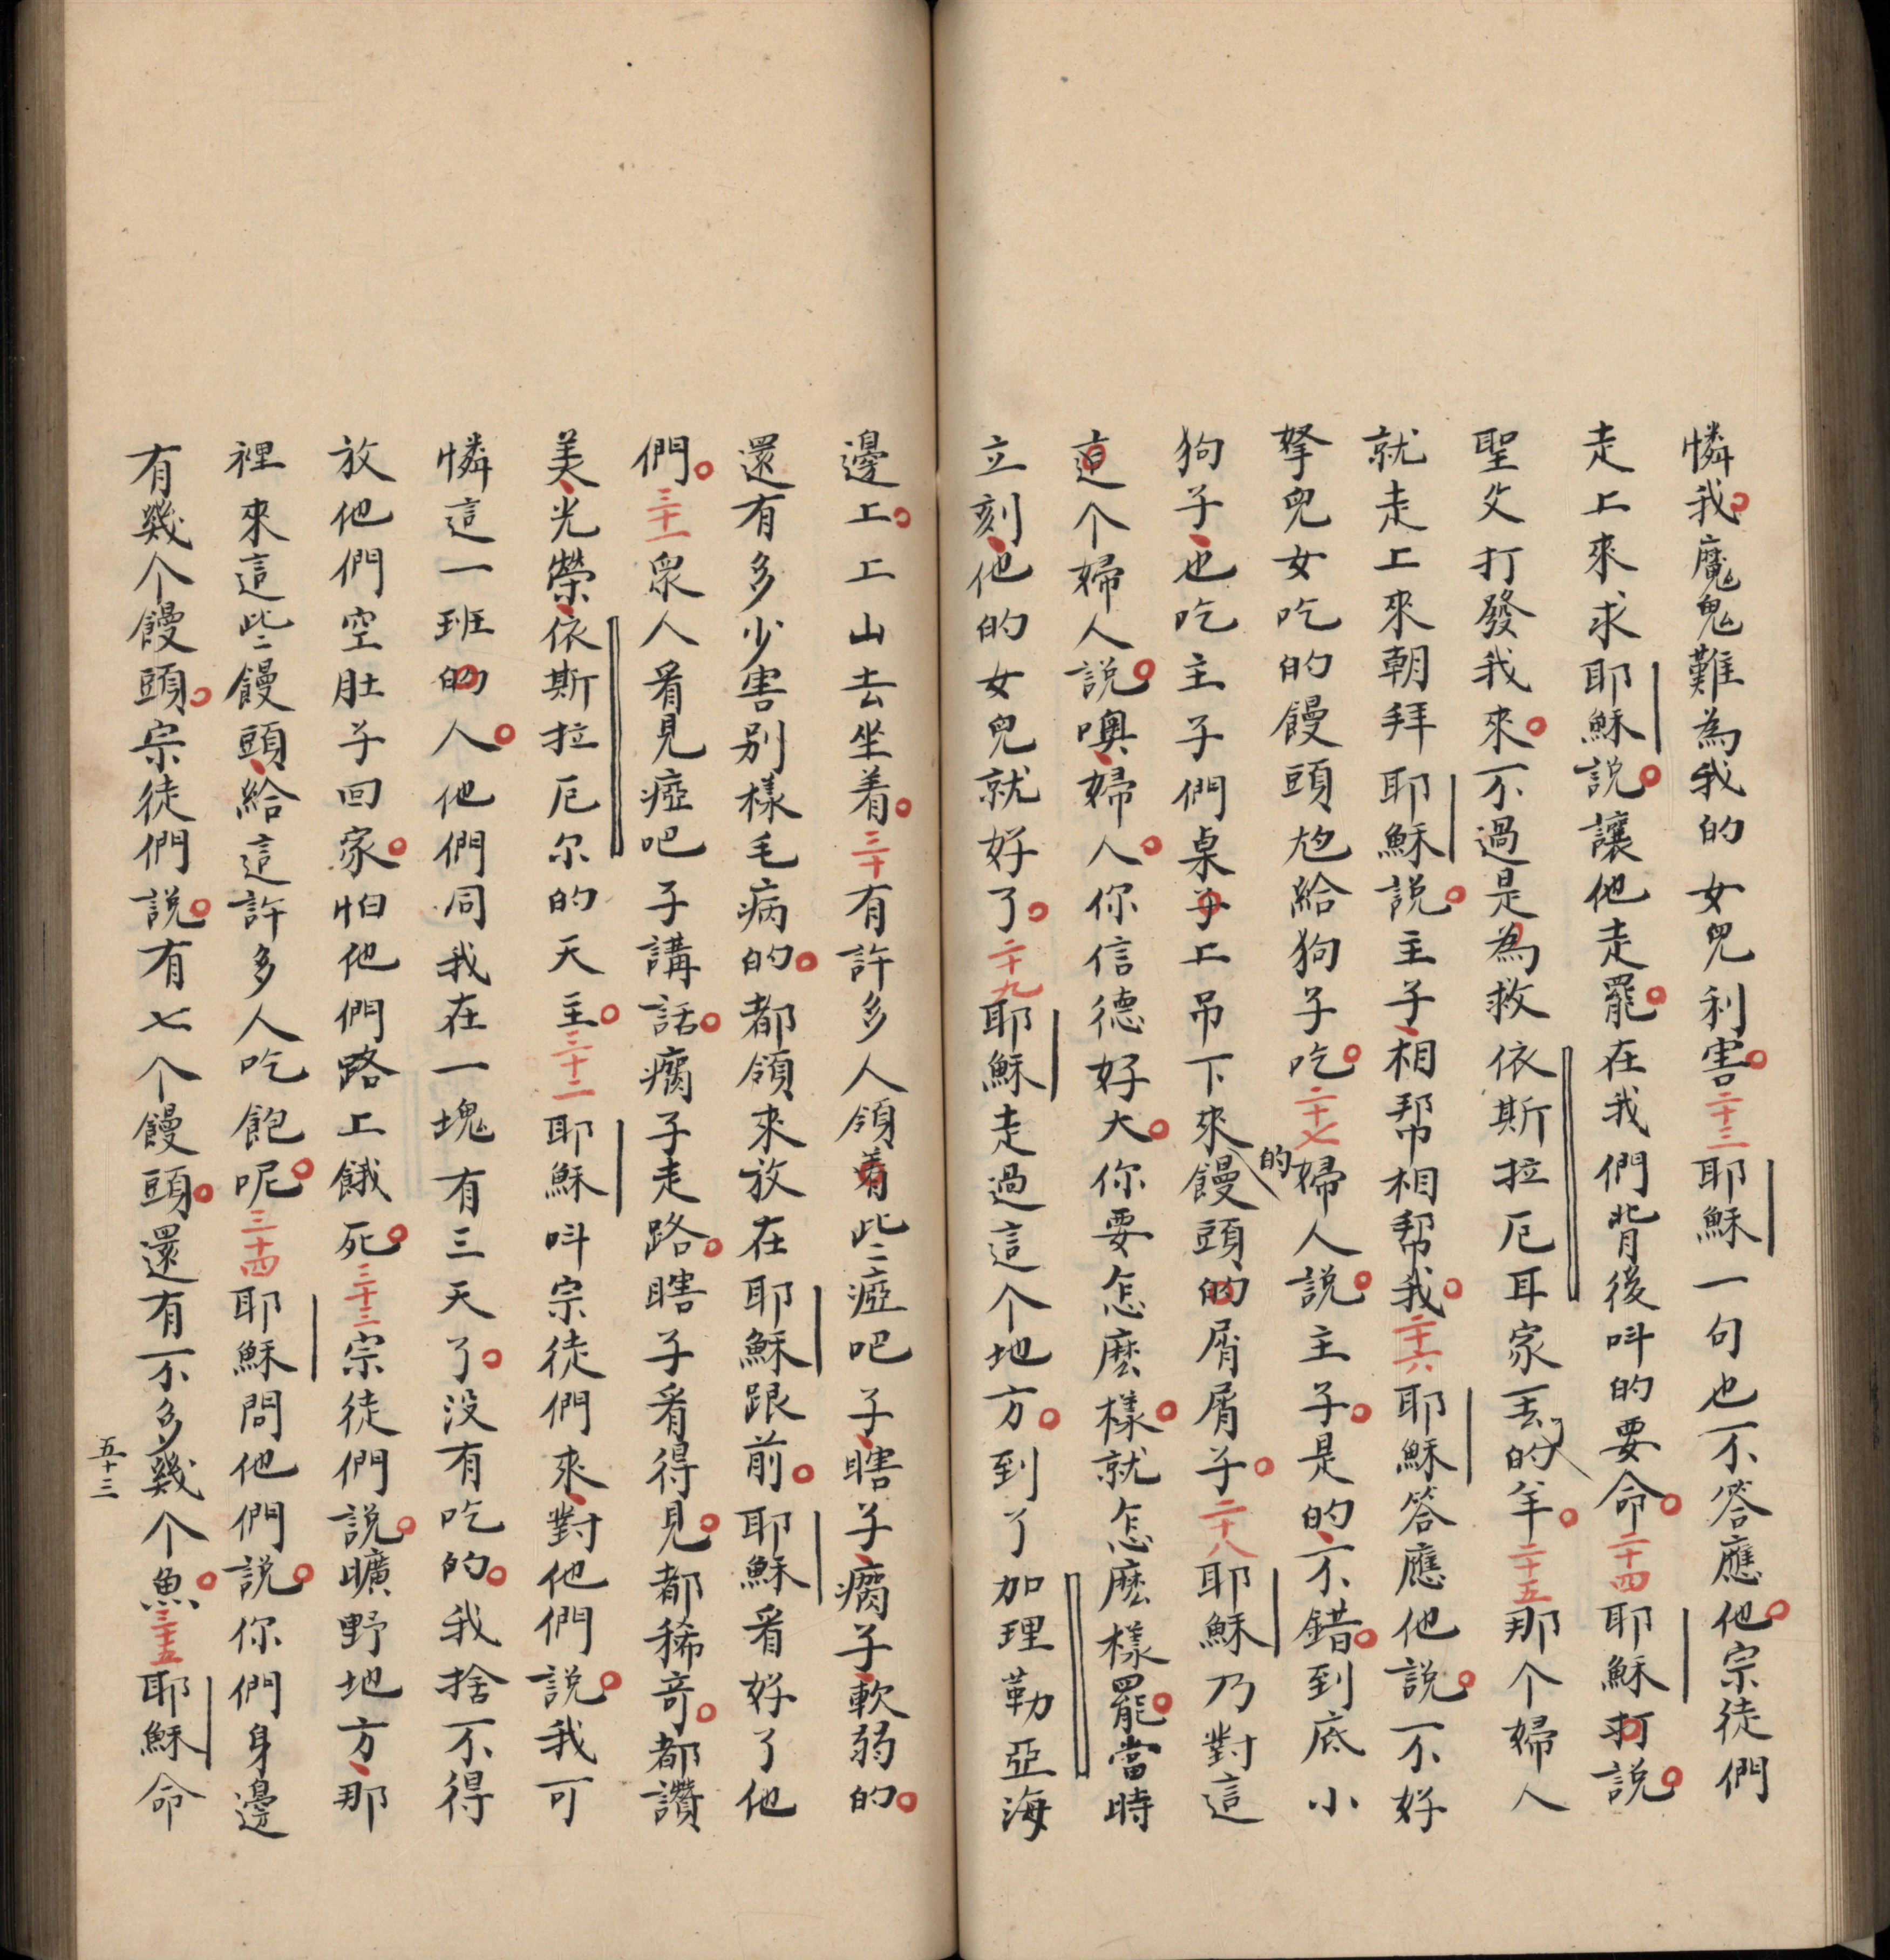 憐我。魔鬼難為我的女兒利害。二十三耶穌一句也不答應他。宗徒們
走上來、求耶穌說。讓他走罷。在我們背後呌的要命。二十四耶穌打說。
聖父打發我來。不過是為救依斯拉厄耳家丟了的羊。二十五那个婦人
就走上來朝拜耶穌說。主子、相帮相帮我。二十六耶穌答應他說。不好
拏兒女吃的饅頭尅給狗子吃。二十七婦人說。主子。是的、不錯。到底小
狗子、也吃主子們桌子上吊下來的饅頭的屑屑子。二十八耶穌乃對這
這个婦人說。噢、婦人。你信德好大。你要怎麽樣。就怎麽樣罷。當時
立刻、他的女兒就好了。二十九耶穌走過這个地方。到了加理勒亞海
邊上。上山去坐着。三十有許多人領着些瘂吧子、瞎子、瘸子、軟弱的。
還有多少害别樣毛病的。都領來放在耶穌跟前。耶穌看好了他
們。三十一衆人看見瘂吧子講話。瘸子走路。瞎子看得見。都稀竒。都讚
美、光榮、依斯拉厄尔的天主。三十二耶穌呌宗徒們來、對他們說。我可
憐這一班的人。他們同我在一塊有三天了。没有吃的。我捨不得
放他們空肚子回家。怕他們路上餓死。三十三宗徒們說。曠野地方、那
裡來這些饅頭、給這許多人吃飽呢。三十四耶穌問他們說。你們身邊
有幾个饅頭。宗徒們說。有七个饅頭。還有不多幾个魚。三十五耶穌命
五十三